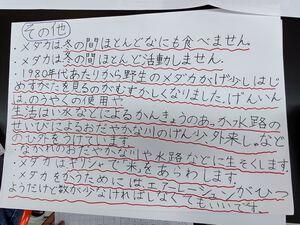 その他
・メダカは冬の間ほとんどなにも食べません。
・メダカは冬の間ほとんど活動しません。
・1980年代あたりから野生のメダカがげん少しはじ
めすがたを見るのがむずかしくなりました。げんいん
は、のうやくの使用や
生活はい水などによるかんきょうのあっか、水路の
せいびによるおだやかな川のげん少、外来しゅなど
ながれのおだやかな川や水路などに生そくします。
・メダカはギリシャで「米」をあらわします。
・メダカをかうためには、エアーレーションがひつ
ようだけど数が少なければしなくてもいいです。